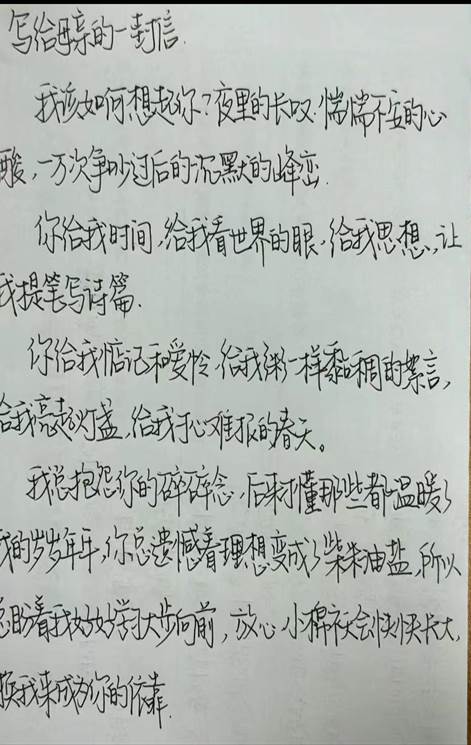 写给母亲的一封信.
我该如何想起你?夜里的长叹.惴惴不安的心
酸,一万次争吵过后的沉默的峰峦.
你给我时间,给我看世界的眼,给我思想,让
我提笔写诗篇.
你给我惦记和爱怜,给我粥一样黏稠的絮言,
给我亮起灯盏,给我寸心难报的春天。
我总抱怨你的碎碎念,后来才懂那些都温暖了
我的岁岁年年,你总遗憾着理想变成了柴米油盐,所以
总盼着我好好学习大步向前,放心小棉袄会快快长大,
换我来成为你的依靠.